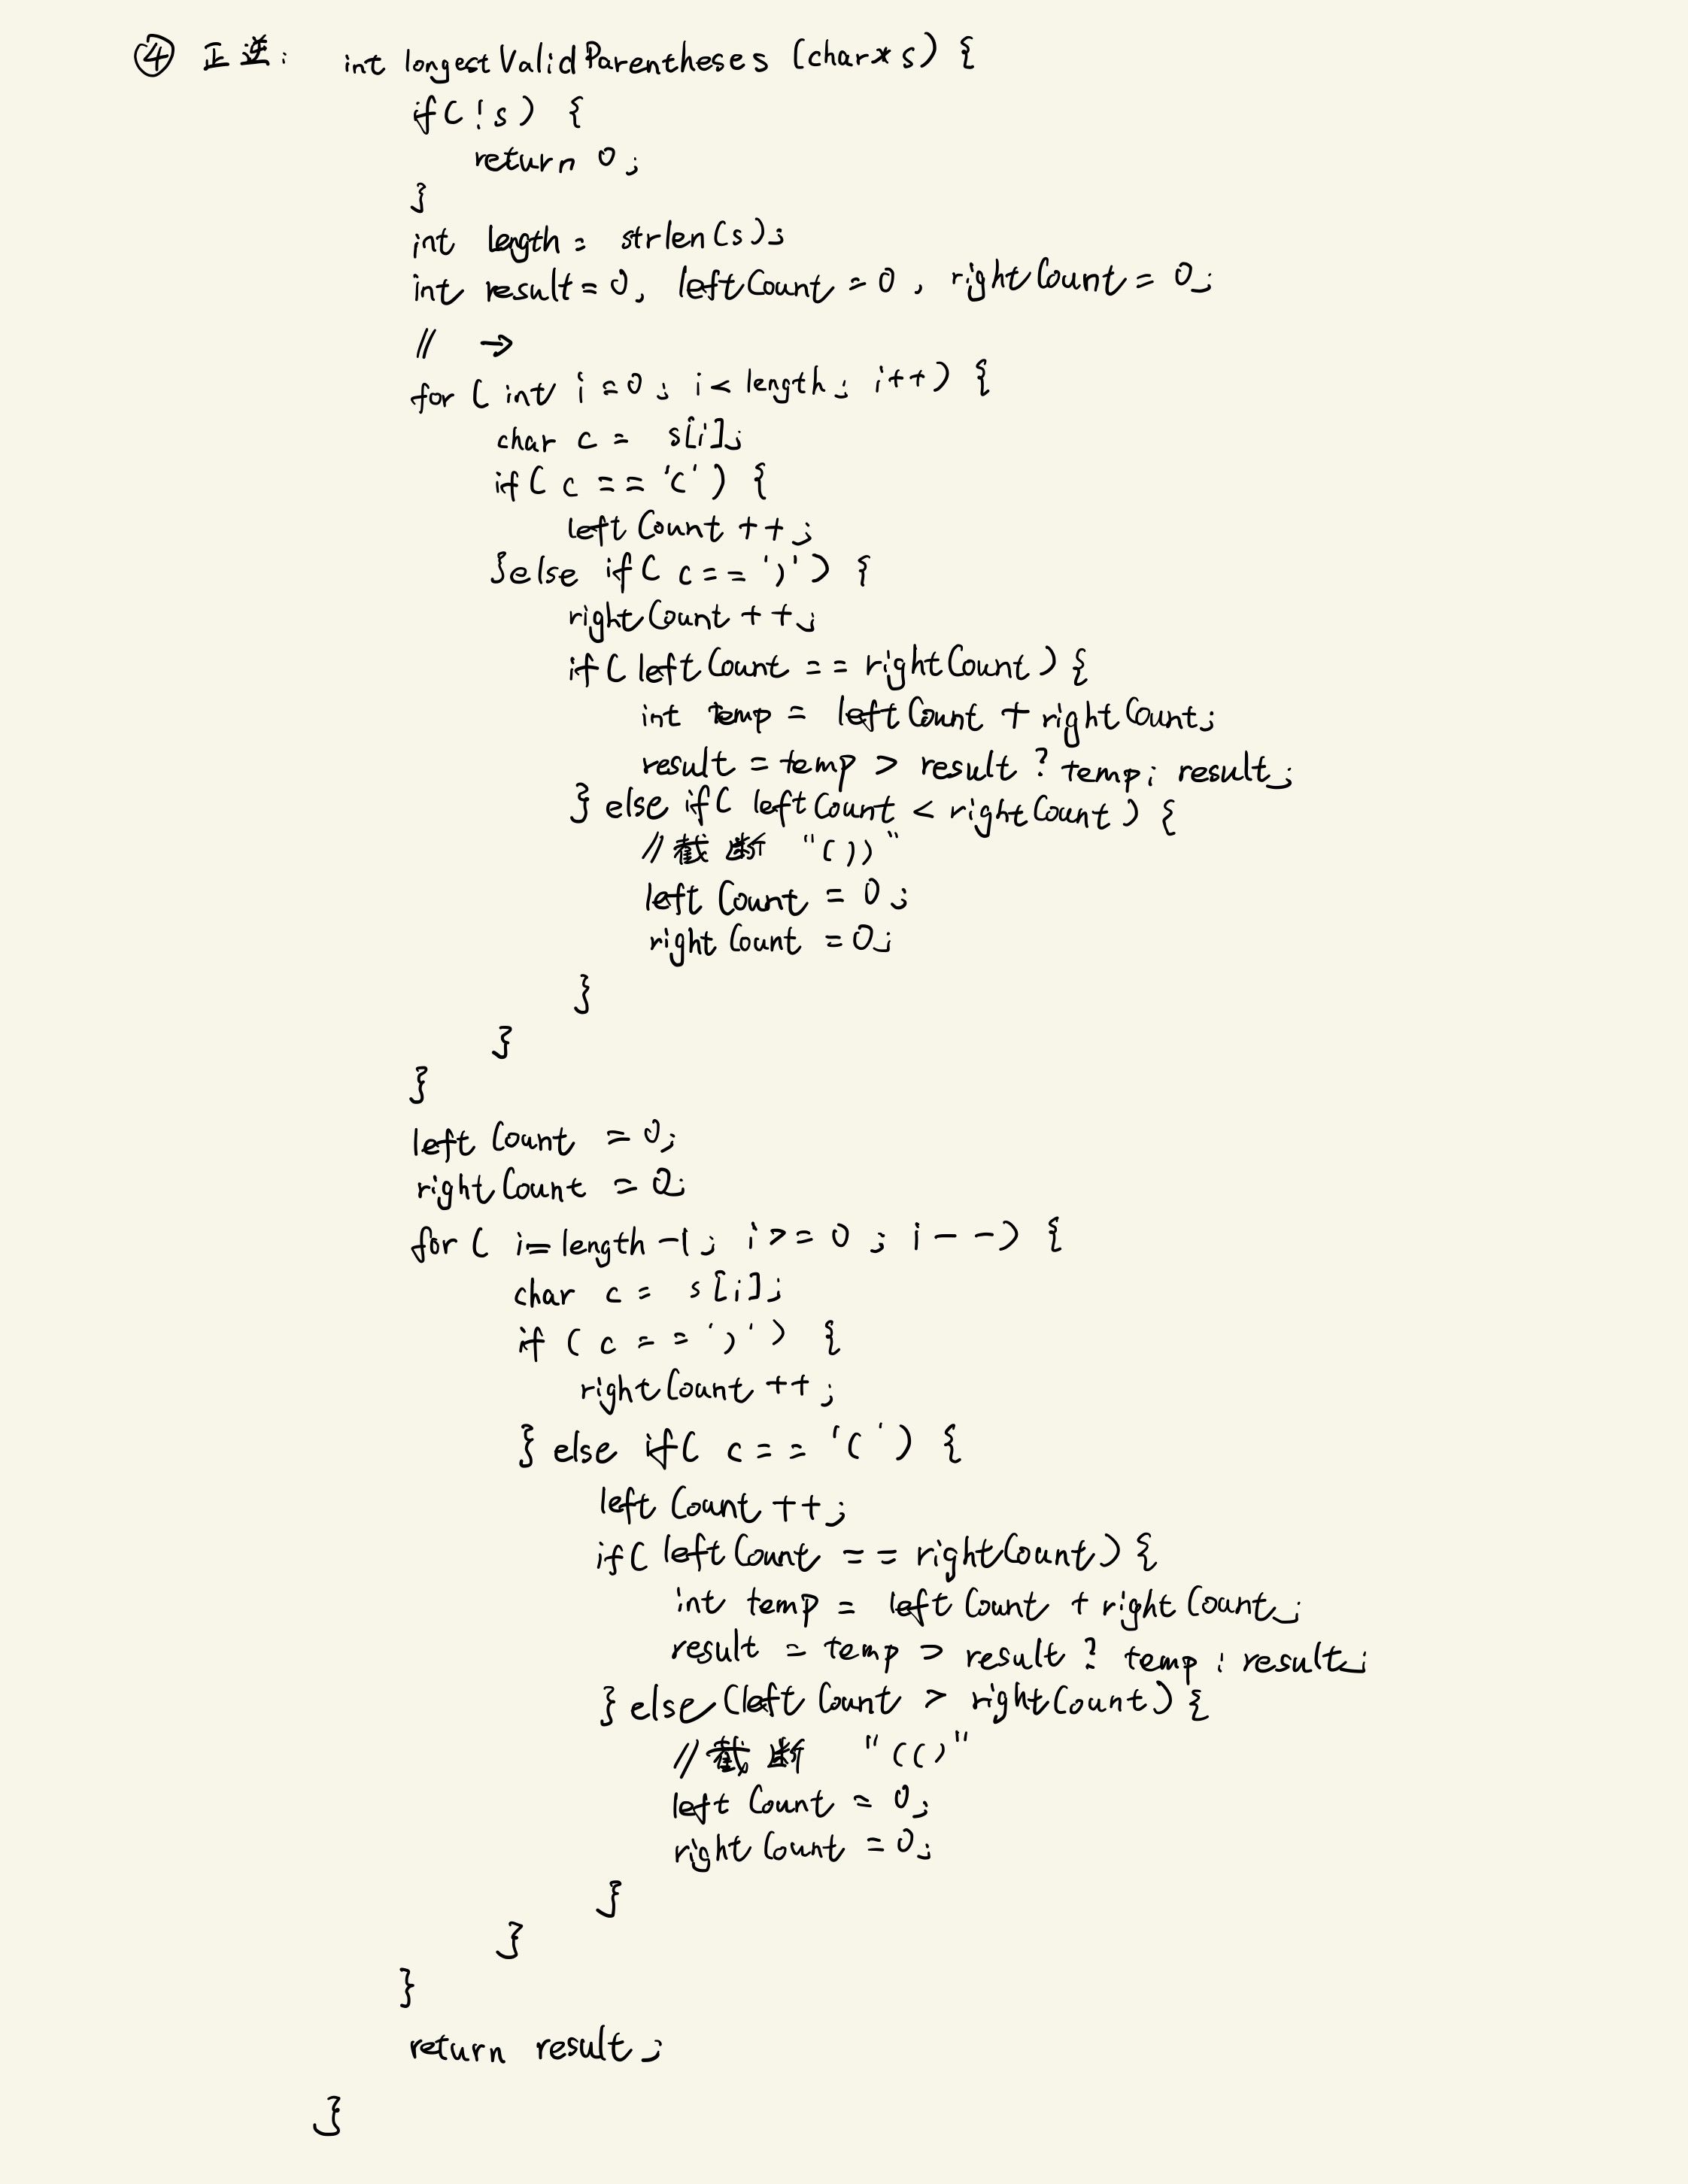 ④ 正逆: int longestValidParentheses (char* s) {
if( !s) {
return 0;
}
int length = strlen(s);
int result=0, leftCount = 0, rightCount = 0;
// →
for ( int i = 0; i < length; i++) {
char c = s[i];
if( c == '(' ) {
leftCount ++;
}else if( c == ')' ) {
rightCount ++;
if( leftCount == rightCount ) {
int temp = leftCount + rightCount;
result = temp > result ? temp : result;
} else if( leftCount < rightCount ) {
//截断 "())"
leftCount = 0;
rightCount = 0;
}
}
}
leftCount = 0;
rightCount = 0;
for ( i = length -1; i >= 0; i - -) {
char c = s[i];
if ( c == ')' ) {
rightCount ++;
} else if( c == '(' ) {
leftCount ++;
if( leftCount == rightCount) {
int temp = leftCount + rightCount;
result = temp > result ? temp : result;
} else (leftCount > rightCount) {
//截断 "(()"
leftCount = 0;
rightCount = 0;
}
}
}
return result;
}